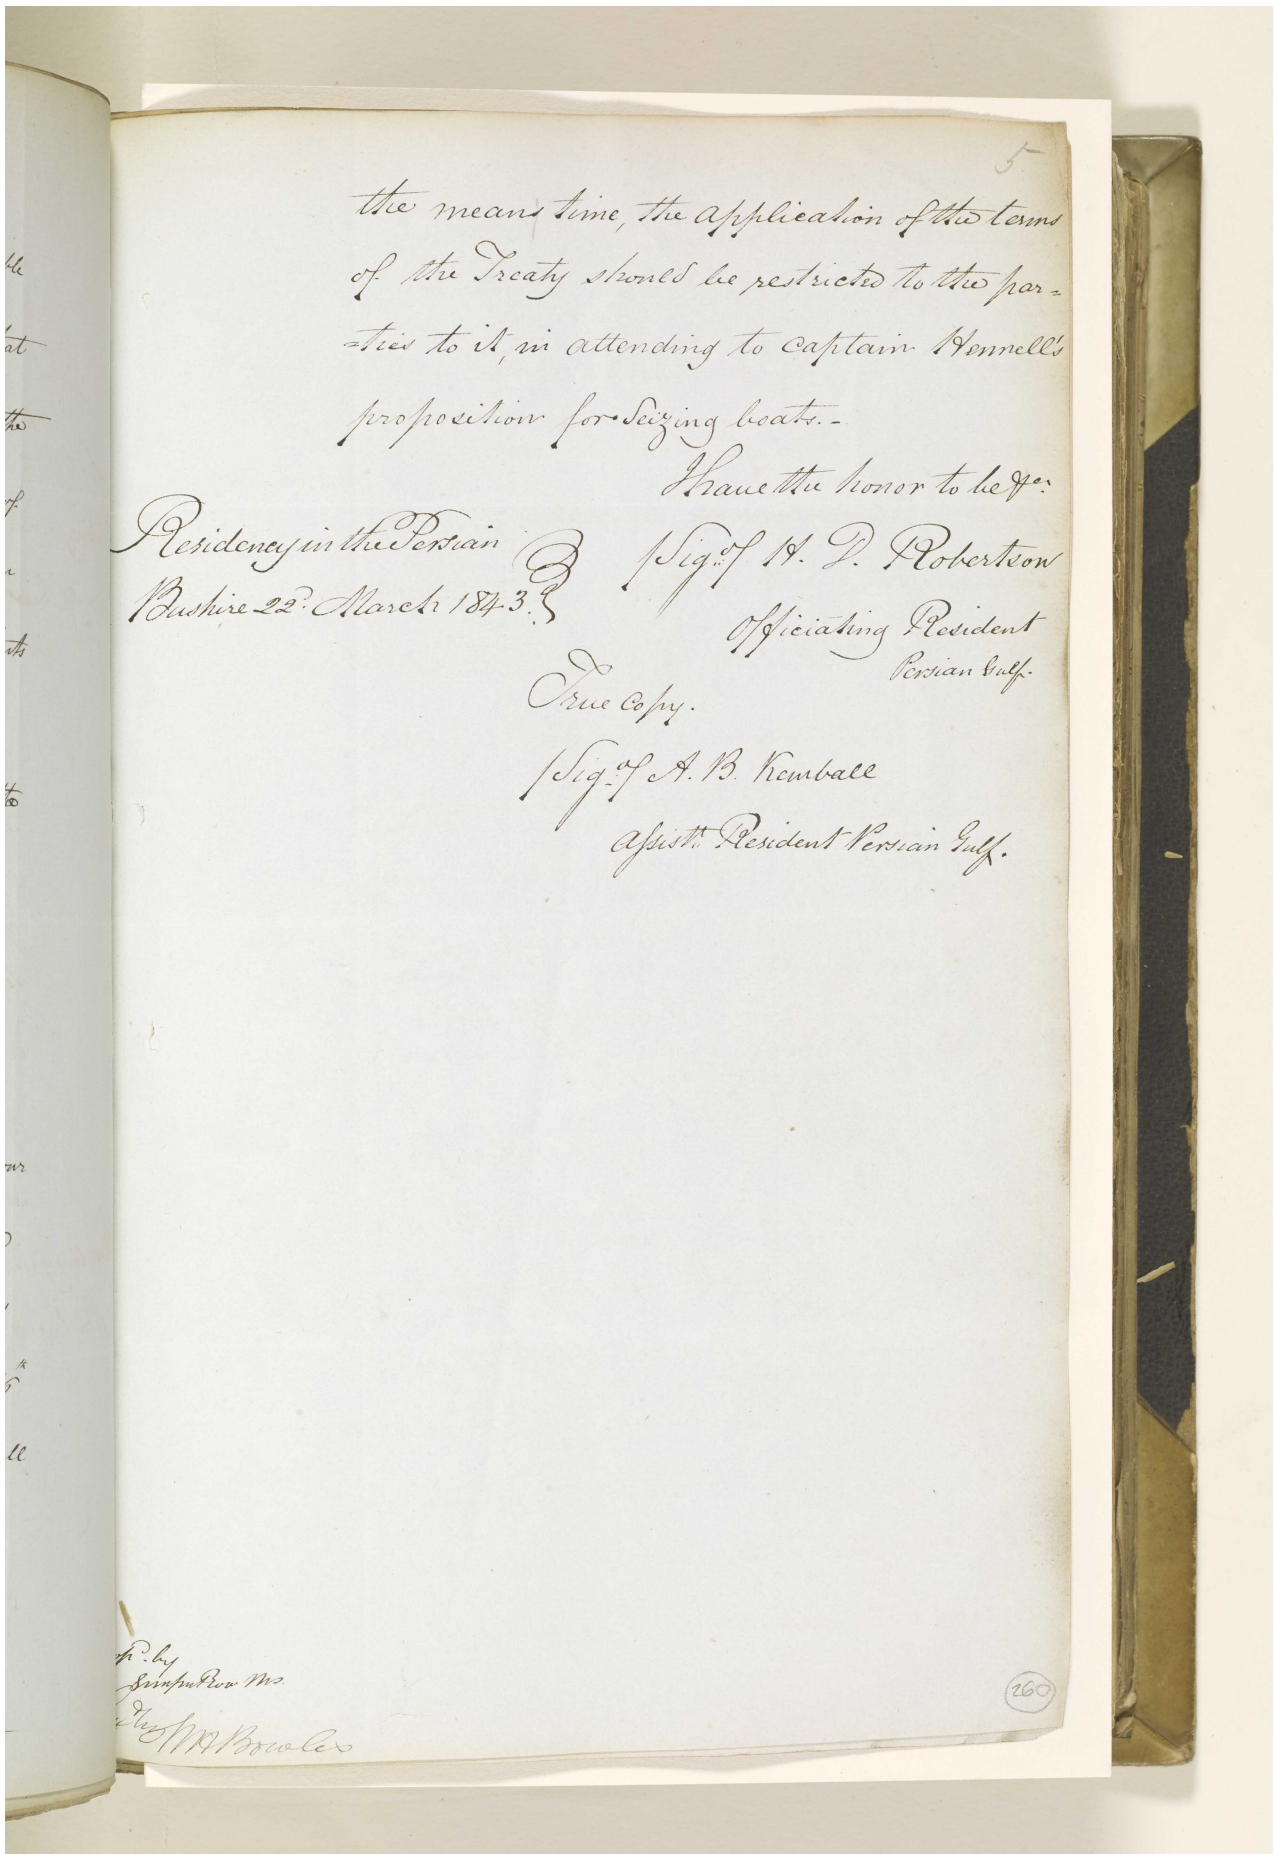 5
the means time, the application of the terms
of the Treaty should be restricted to the par=
=ties to it, in attending to Captain Hennell's
proposition for Seizing boats.-
I have the honor to be &ca.
Residency in the Persian
(Sigd/ H. D. Robertson
Bushire 22d. March 1843.
Officiating Resident
Persian Gulf.
True Copy.
(Sigd/ A. B. Kemball
Assistt. Resident Persian Gulf.
by
Row Ms.
260